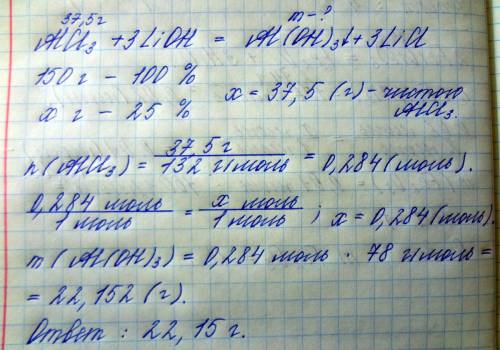 37,5 г m - ?
AlCl₃ + 3LiOH = Al(OH)₃↓ + 3LiCl
150 г - 100 %
x г - 25 % x = 37,5 (г) - чистого AlCl₃.
n(AlCl₃) = 37,5 г / 132 г/моль = 0,284 (моль).
0,284 моль / 1 моль = x моль / 1 моль ; x = 0,284 (моль).
m(Al(OH)₃) = 0,284 моль · 78 г/моль =
= 22,152 (г).
Ответ : 22,15 г.